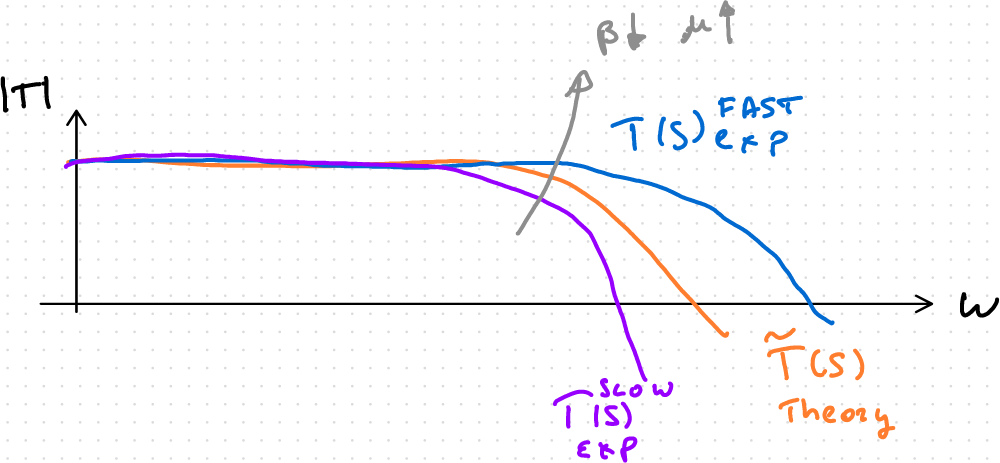 β↓ μ↑
|T|
T(S) FAST
exp
ω
T̃(S)
Theory
T(S) SLOW
exp